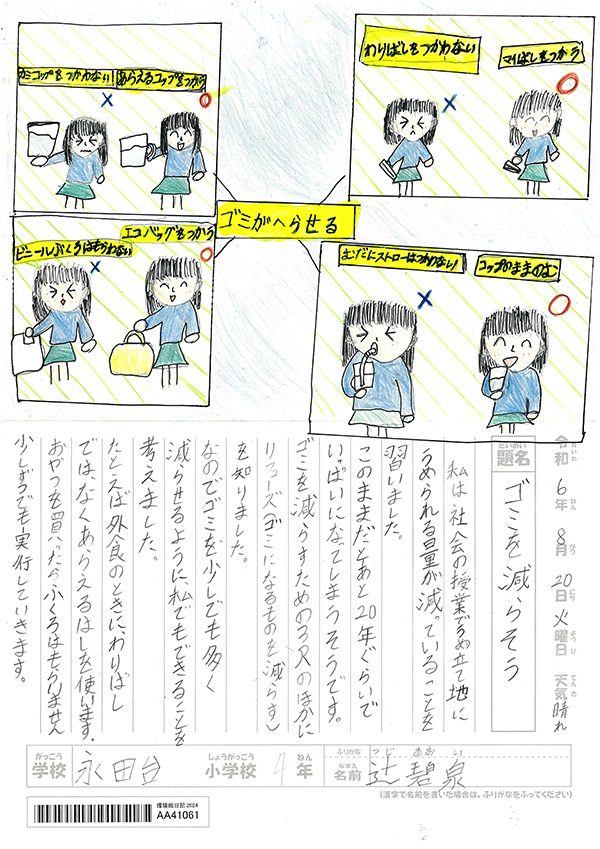 カミコップをつかわない!
あらえるコップをつかう
わりばしをつかわない
マイばしをつかう
ゴミがへらせる
ビニールぶくろはもらわない
エコバッグをつかう
むだにストローはつかわない!
コップのままのむ
令和6年8月20日火曜日 天気晴れ
れいわ ねん がつ にち ようび てんき
だいめい
題名 ゴミを減らそう
私は社会の授業でうめ立て地に
うめられる量が減っていることを
習いました。
このままだとあと20年ぐらいで
いっぱいになってしまうそうです。
ゴミを減らすための3Rのほかに
リフューズ(ゴミになるものを減らす)
を知りました。
なのでゴミを少しでも多く
減らせるように、私でもできることを
考えました。
たとえば外食のときに、わりばし
では、なくあらえるはしを使います。
おやつを買ったらふくろはもらいません
少しずつでも実行していきます。
がっこう しょうがっこう ねん ふりがな つじ あおい
学校 永田台 小学校 4年 なまえ 名前 辻碧泉
(漢字で名前を書いた場合は、ふりがなをふってください)
環境絵日記2024
AA41061